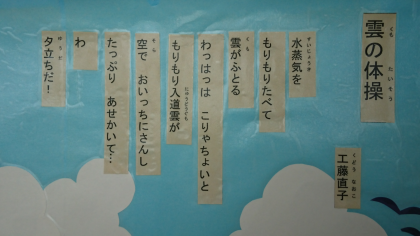 雲の体操
工藤直子
水蒸気を
もりもりたべて
雲がふとる
わっはっは こりゃちょいと
もりもり入道雲が
空で おいっちにさんし
たっぷり あせかいて…
わ
夕立ちだ!